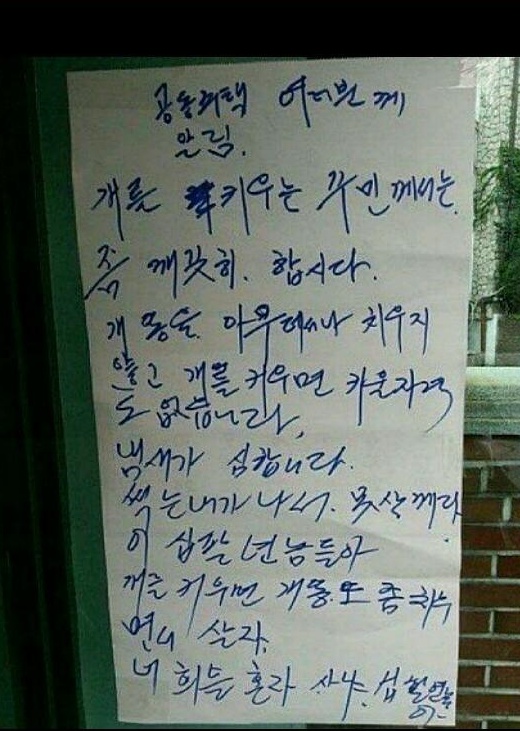 공동주택 여러분께
알림.
개를 키우는 주민께서는.
좀 깨끗히. 합시다.
개똥을 아무데서나 치우지
않고 개를 키우면 키울자격
도 없습니다,
냄새가 심합니다.
썩는내가 나서. 못살께다.
이 십팔 년놈들아
개를 키우면 개똥또 좀 치우
면서 살자.
너희들 혼라 사냐.